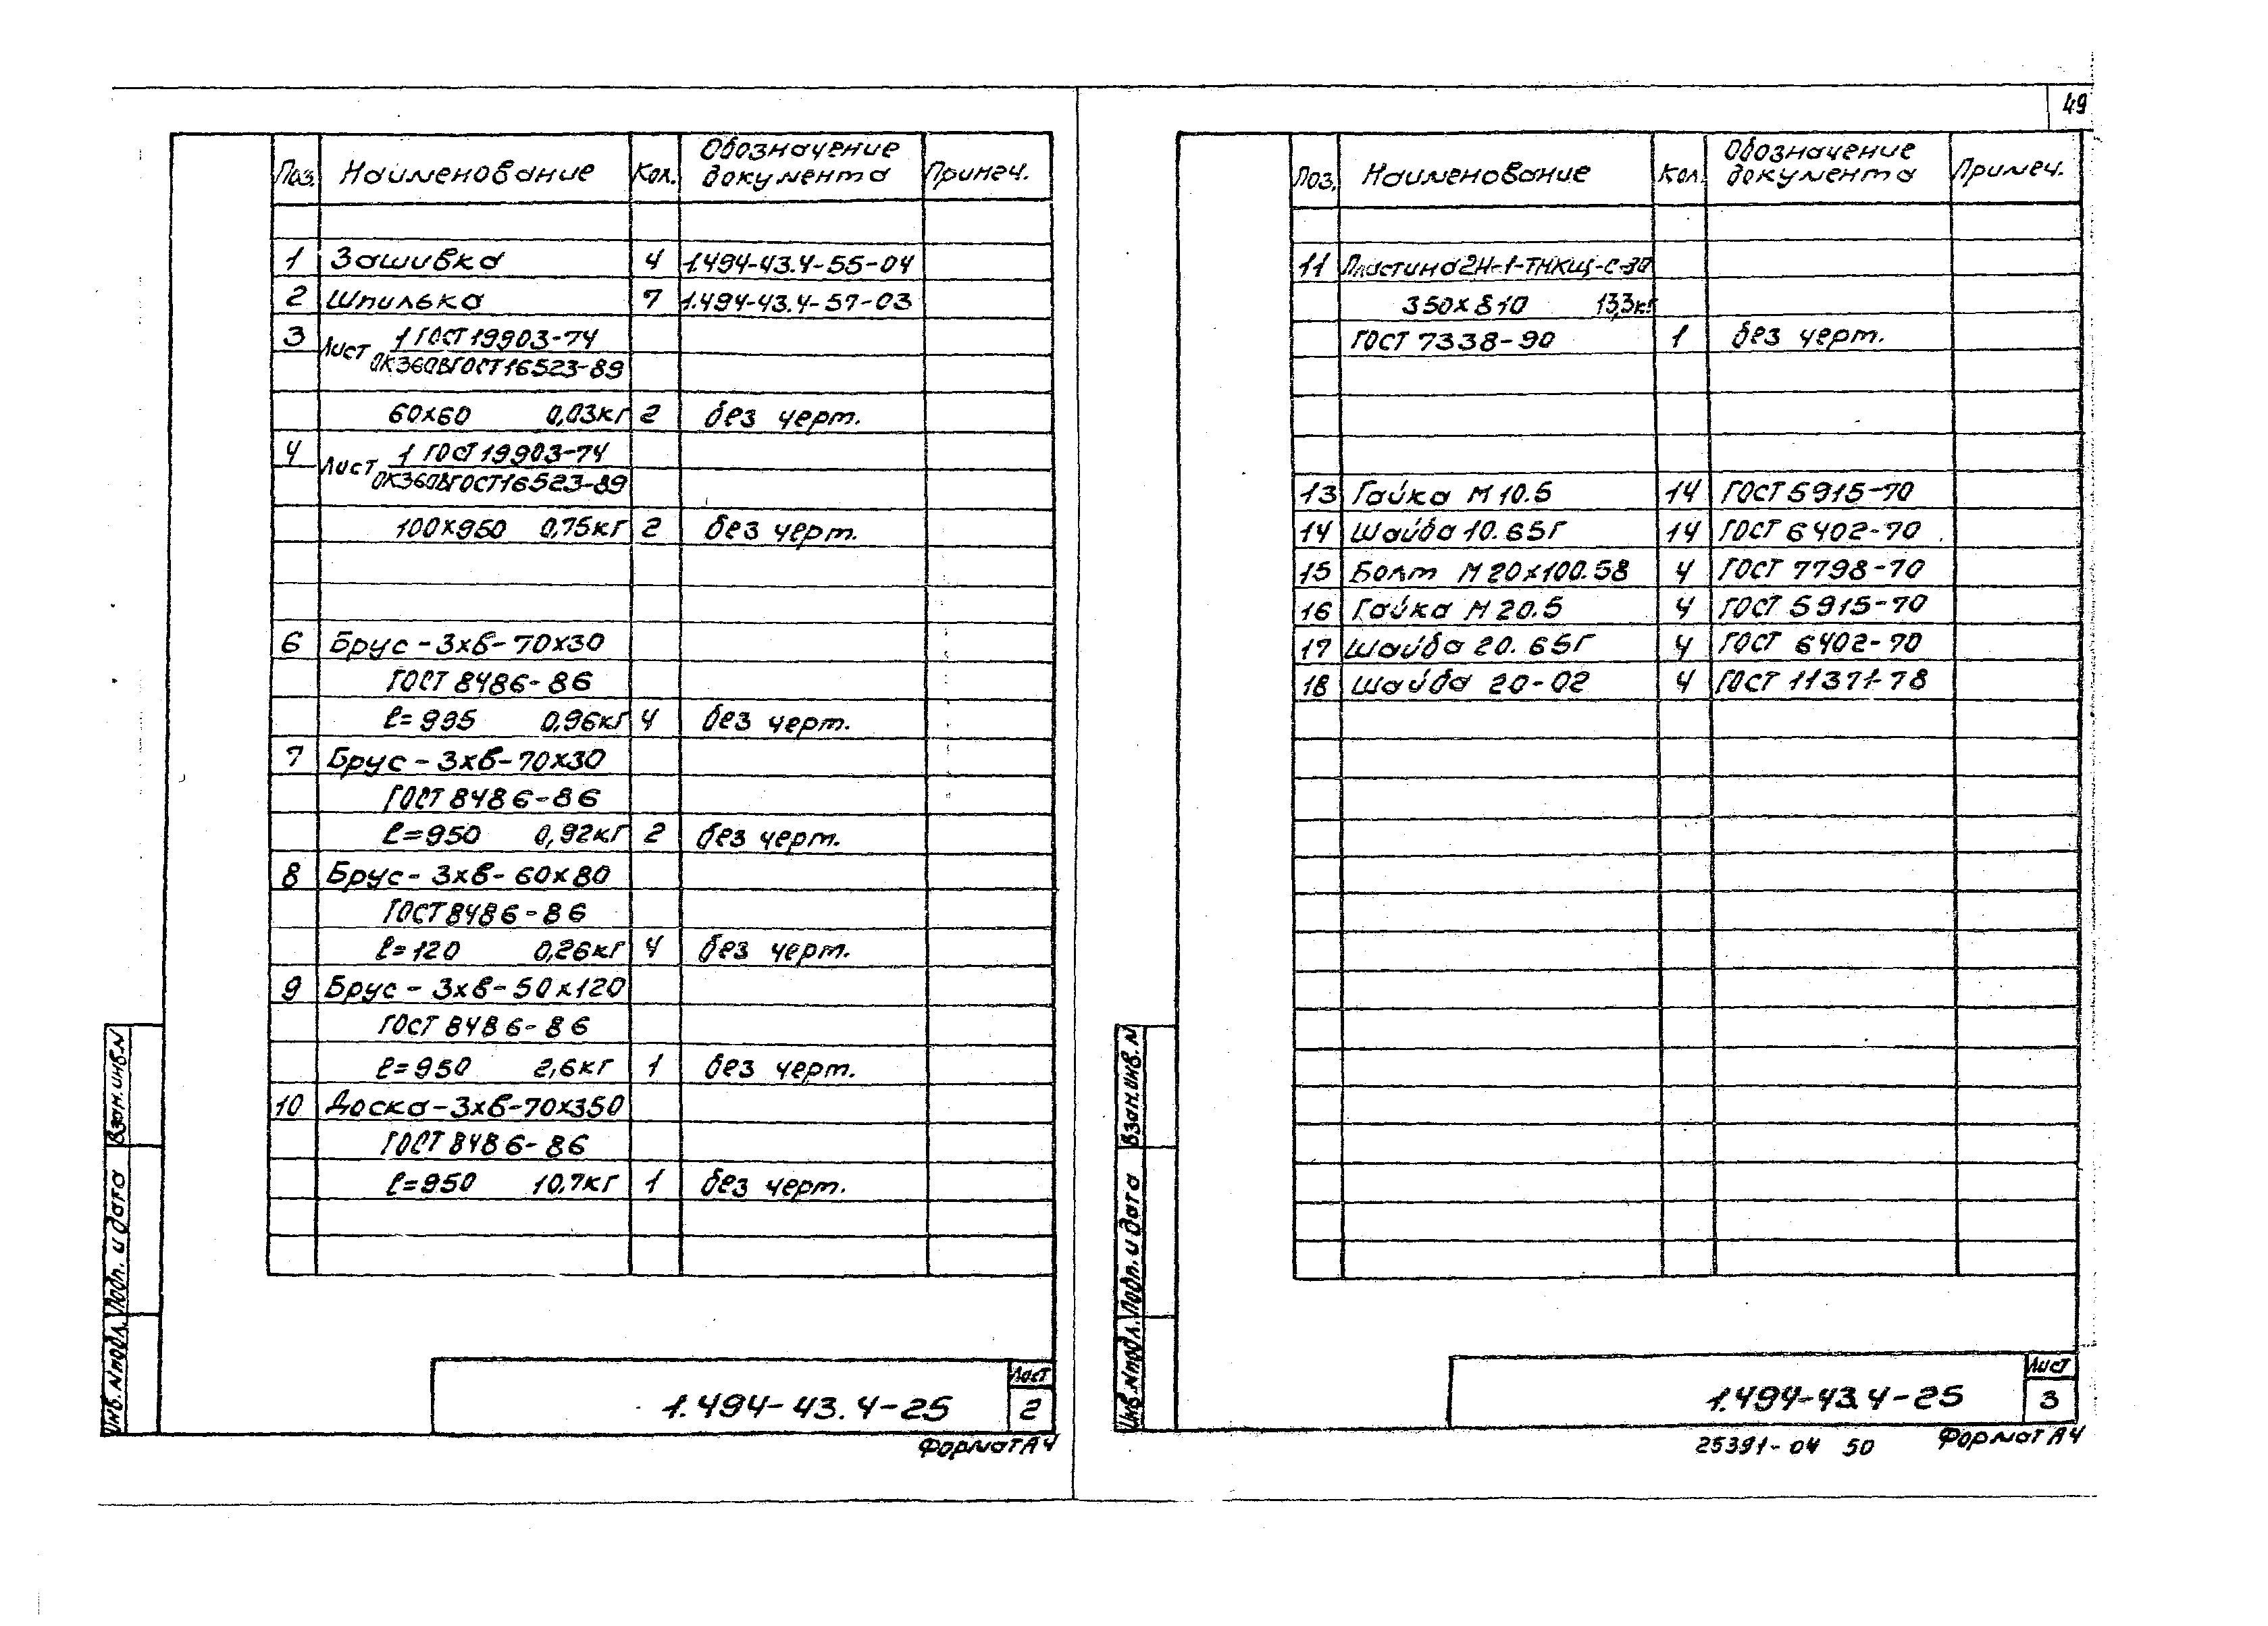 49
Поз. Наименование Кол. Обозначение документа Примеч.
1 Зашивка 4 1.494-43.4-55-04
2 Шпилька 7 1.494-43.4-57-03
3 Лист 1 ГОСТ 19903-74
ОК360В ГОСТ 16523-89
60х60 0,03кг 2 без черт.
4 Лист 1 ГОСТ 19903-74
ОК360В ГОСТ 16523-89
100х950 0,75кг 2 без черт.
6 Брус-3хв-70х30
ГОСТ 8486-86
ℓ=995 0,96кг 4 без черт.
7 Брус-3хв-70х30
ГОСТ 8486-86
ℓ=950 0,92кг 2 без черт.
8 Брус-3хв-60х80
ГОСТ 8486-86
ℓ=120 0,26кг 4 без черт.
9 Брус-3хв-50х120
ГОСТ 8486-86
ℓ=950 2,6кг 1 без черт.
10 Доска-3хв-70х350
ГОСТ 8486-86
ℓ=950 10,7кг 1 без черт.
Инв.Nподл. Подп. и дата Взам.инв.N
1.494-43.4-25
Лист
2
Формат А4
Поз. Наименование Кол. Обозначение документа Примеч.
11 Пластина 2Н-1-ТМКЩ-С-30
350х810 13,3кг
ГОСТ 7338-90 1 без черт.
13 Гайка М10.5 14 ГОСТ 5915-70
14 Шайба 10.65Г 14 ГОСТ 6402-70
15 Болт М20х100.58 4 ГОСТ 7798-70
16 Гайка М20.5 4 ГОСТ 5915-70
17 Шайба 20.65Г 4 ГОСТ 6402-70
18 Шайба 20-02 4 ГОСТ 11371-78
Инв.Nподл. Подп. и дата Взам.инв.N
1.494-43.4-25
Лист
3
25391-04 50 Формат А4